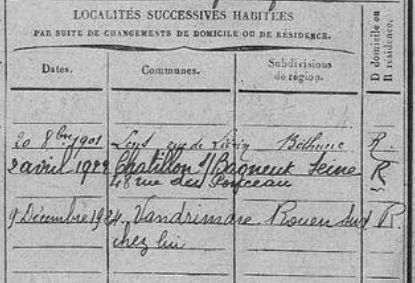 LOCALITÉS SUCCESSIVES HABITÉES
PAR SUITE DE CHANGEMENTS DE DOMICILE OU DE RÉSIDENCE.
D domicile ou
R résidence.
Dates.
Communes.
Subdivisions
de région.
20 8bre 1901 Lens rue de Liévin Béthune R.
2 avril 1922 Chatillon s/ Bagneux Seine R
48 rue du Ponceau
9 Décembre 1924 Vandrimare Rouen Sud R.
chez lui